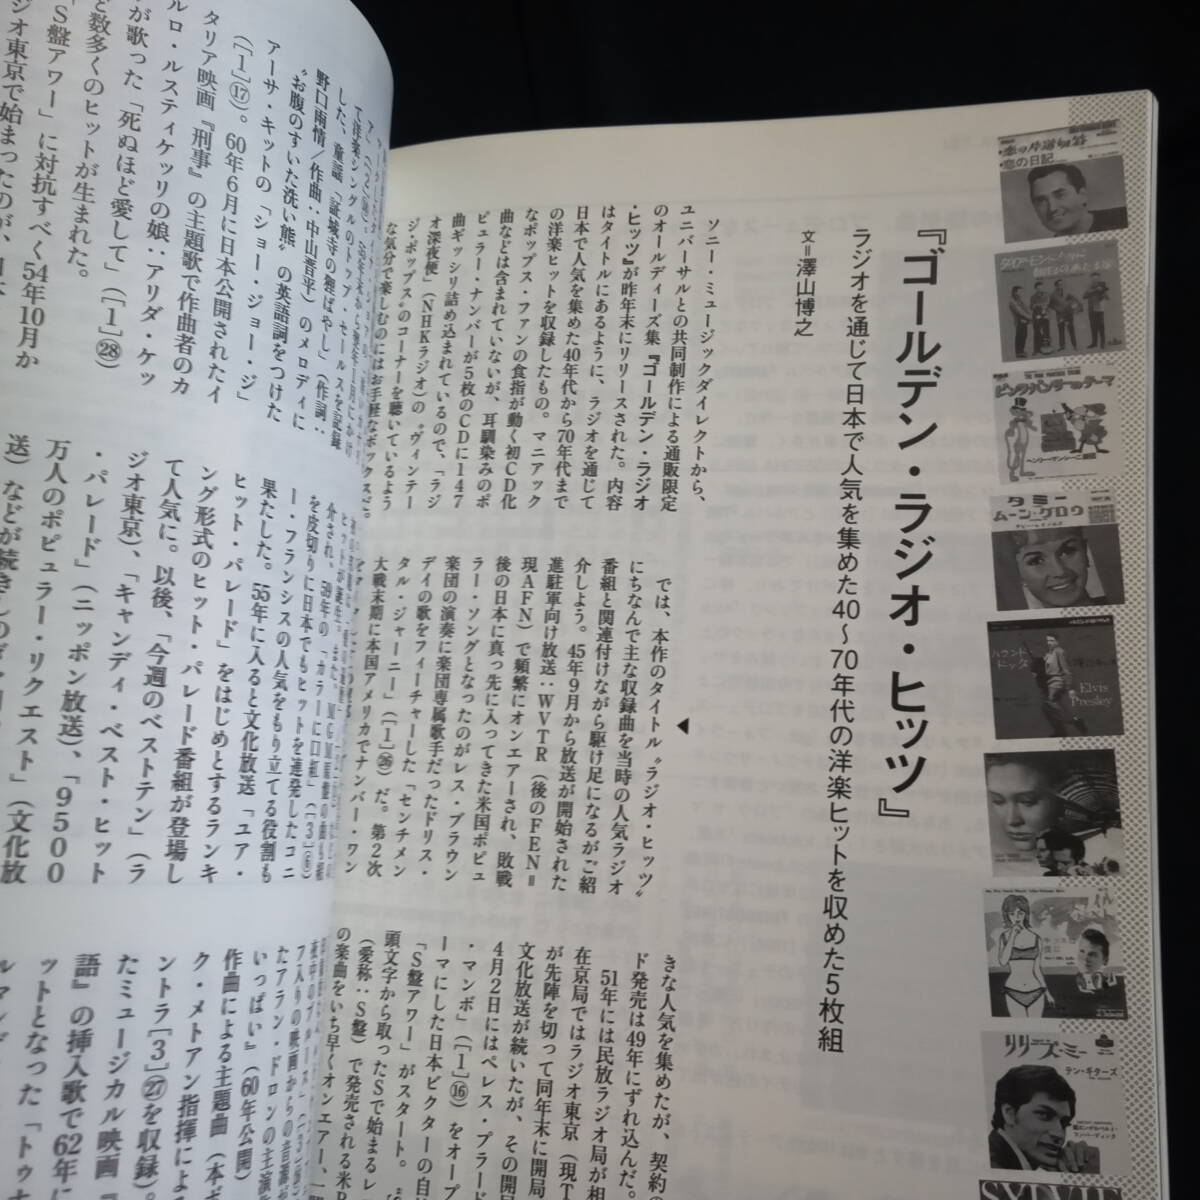 『ゴールデン・ラジオ・ヒッツ』
ラジオを通じて日本で人気を集めた40〜70年代の洋楽ヒットを収めた5枚組
文＝澤山博之
ソニー・ミュージックダイレクトから、
ユニバーサルとの共同制作による通販限定
のオールディーズ集『ゴールデン・ラジオ
・ヒッツ』が昨年末にリリースされた。内容
はタイトルにあるように、ラジオを通じて
日本で人気を集めた40年代から70年代まで
の洋楽ヒットを収録したもの。マニアック
なポップス・ファンの食指が動く初CD化
曲などは含まれていないが、耳馴染みのポ
ピュラー・ナンバーが5枚のCDに147
曲ギッシリ詰め込まれているので、「ラジ
オ深夜便」（NHKラジオ）の〝ヴィンテー
ジ・ポップス〟のコーナーを聴いているよう
な気分で楽しむのにはお手軽なボックスだ。
では、本作のタイトル〝ラジオ・ヒッツ〟
にちなんで主な収録曲を当時の人気ラジオ
番組と関連付けながら駆け足になるがご紹
介しよう。45年9月から放送が開始された
進駐軍向け放送：WVTR（後のFEN＝
現AFN）で頻繁にオンエアーされ、敗戦
後の日本に真っ先に入ってきた米国ポピュ
ラー・ソングとなったのがレス・ブラウン
楽団の演奏に楽団専属歌手だったドリス・
デイの歌をフィーチャーした「センチメン
タル・ジャーニー」（[1]㉖）だ。第2次
大戦末期に本国アメリカでナンバー・ワン
きな人気を集めたが、契約の
ド発売は49年にずれ込んだ。
51年には民放ラジオ局が相
在京局ではラジオ東京（現T
が先陣を切って同年末に開局
文化放送が続いたが、その開局
4月2日にはペレス・プラード
・マンボ」（[1]⑯）をオープ
ーマにした日本ビクターの自社
「S盤アワー」がスタート。
頭文字から取ったSで始まるレ
（愛称：S盤）で発売される米R
の楽曲をいち早くオンエアー、
て洋楽シングルのトップ・セールスを記録
した、童謡「証城寺の狸ばやし」（作詞：
野口雨情／作曲：中山晋平）のメロディに
〝お腹のすいた洗い熊〟の英語詞をつけた
アーサ・キットの「ショー・ジョー・ジ」
（[1]⑰）。60年6月に日本公開されたイ
タリア映画『刑事』の主題歌で作曲者のカ
ルロ・ルスティケッリの娘：アリダ・ケッ
が歌った「死ぬほど愛して」（[1]㉘）
ど数多くのヒットが生まれた。
「S盤アワー」に対抗すべく54年10月か
ジオ東京で始まったのが、
を皮切りに日本でもヒットを連発したコニ
ー・フランシスの人気をもり立てる役割も
果たした。55年に入ると文化放送「ユア・
ヒット・パレード」をはじめとするランキ
ング形式のヒット・パレード番組が登場し
て人気に。以後、「今週のベストテン」（ラ
ジオ東京）、「キャンディ・ベスト・ヒット
・パレード」（ニッポン放送）、「9500
万人のポピュラー・リクエスト」（文化放
送）などが続き
たアラン・ドロンの主演
いっぱい』（60年公開）
作曲による主題曲（本ボ
ク・メトアン指揮によ
ントラ[3]㉗を収録）。
たミュージカル映画『
語』の挿入歌で62年に
ットとなった「トゥナ
恋の日記
ピンクパンサーのテーマ
ヘンリー・マンシーニ楽団
タミー
ムーン・グロウ
ハウンド・ドッグ
Elvis
Presley
リリーズ・ミー
テン・ギターズ